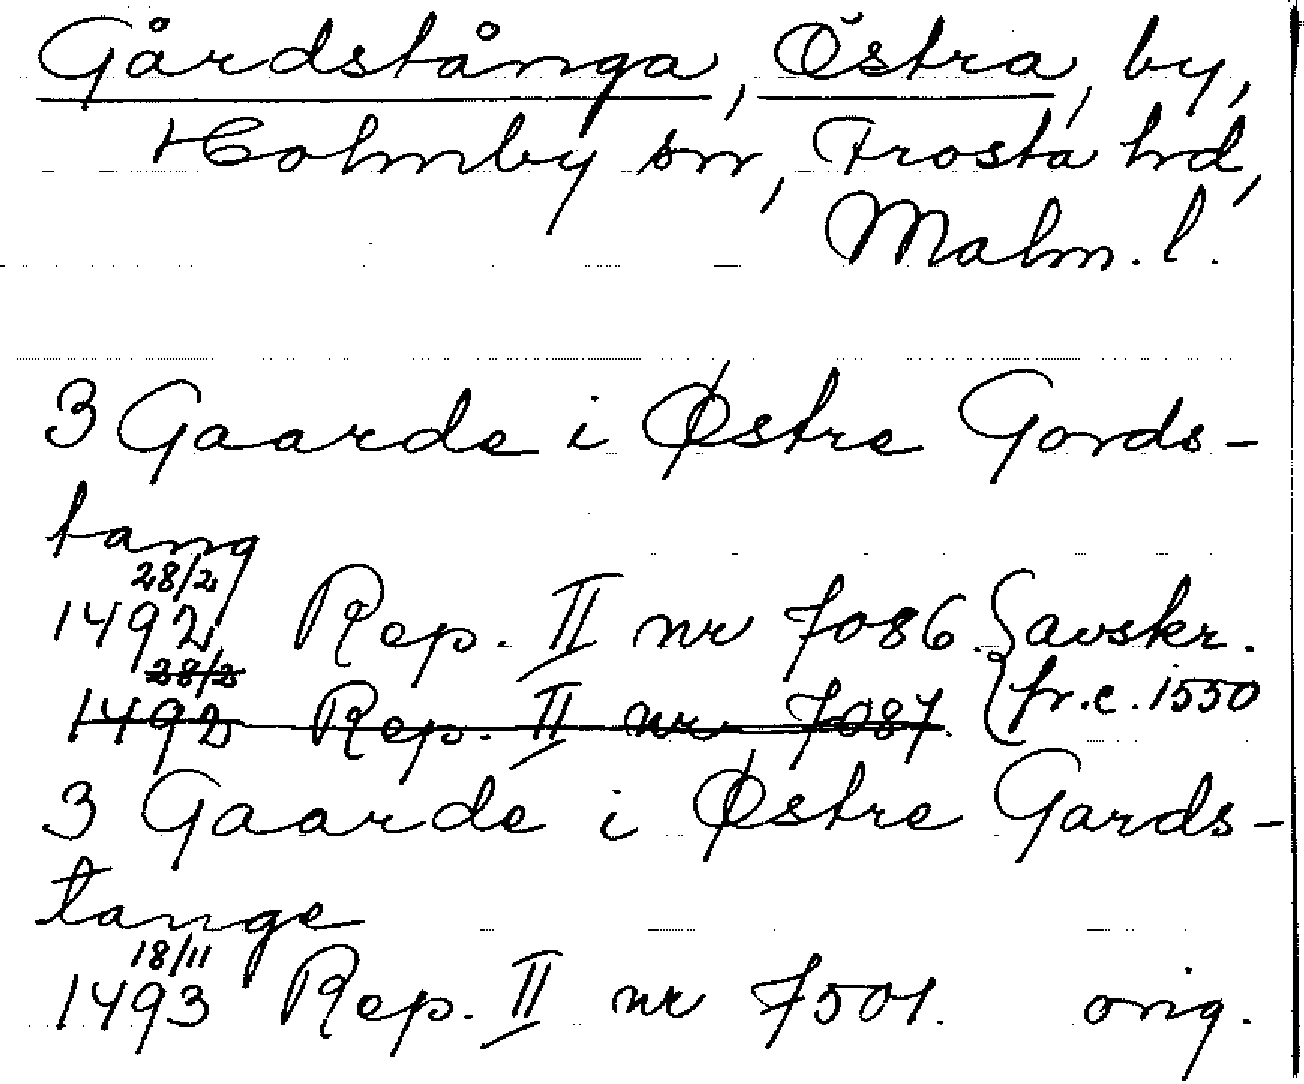 Gårdstånga, Östra, by,
Holmby sn, Frosta hd,
Malm. l.
3 Gaarde i Østre Gords-
tang
28/2
1492 Rep. II nr 7086. avskr.
28/2 fr. c. 1550
1492 Rep. II nr 7087.
3 Gaarde i Østre Gards-
tange
18/11
1493 Rep. II nr 7501. orig.